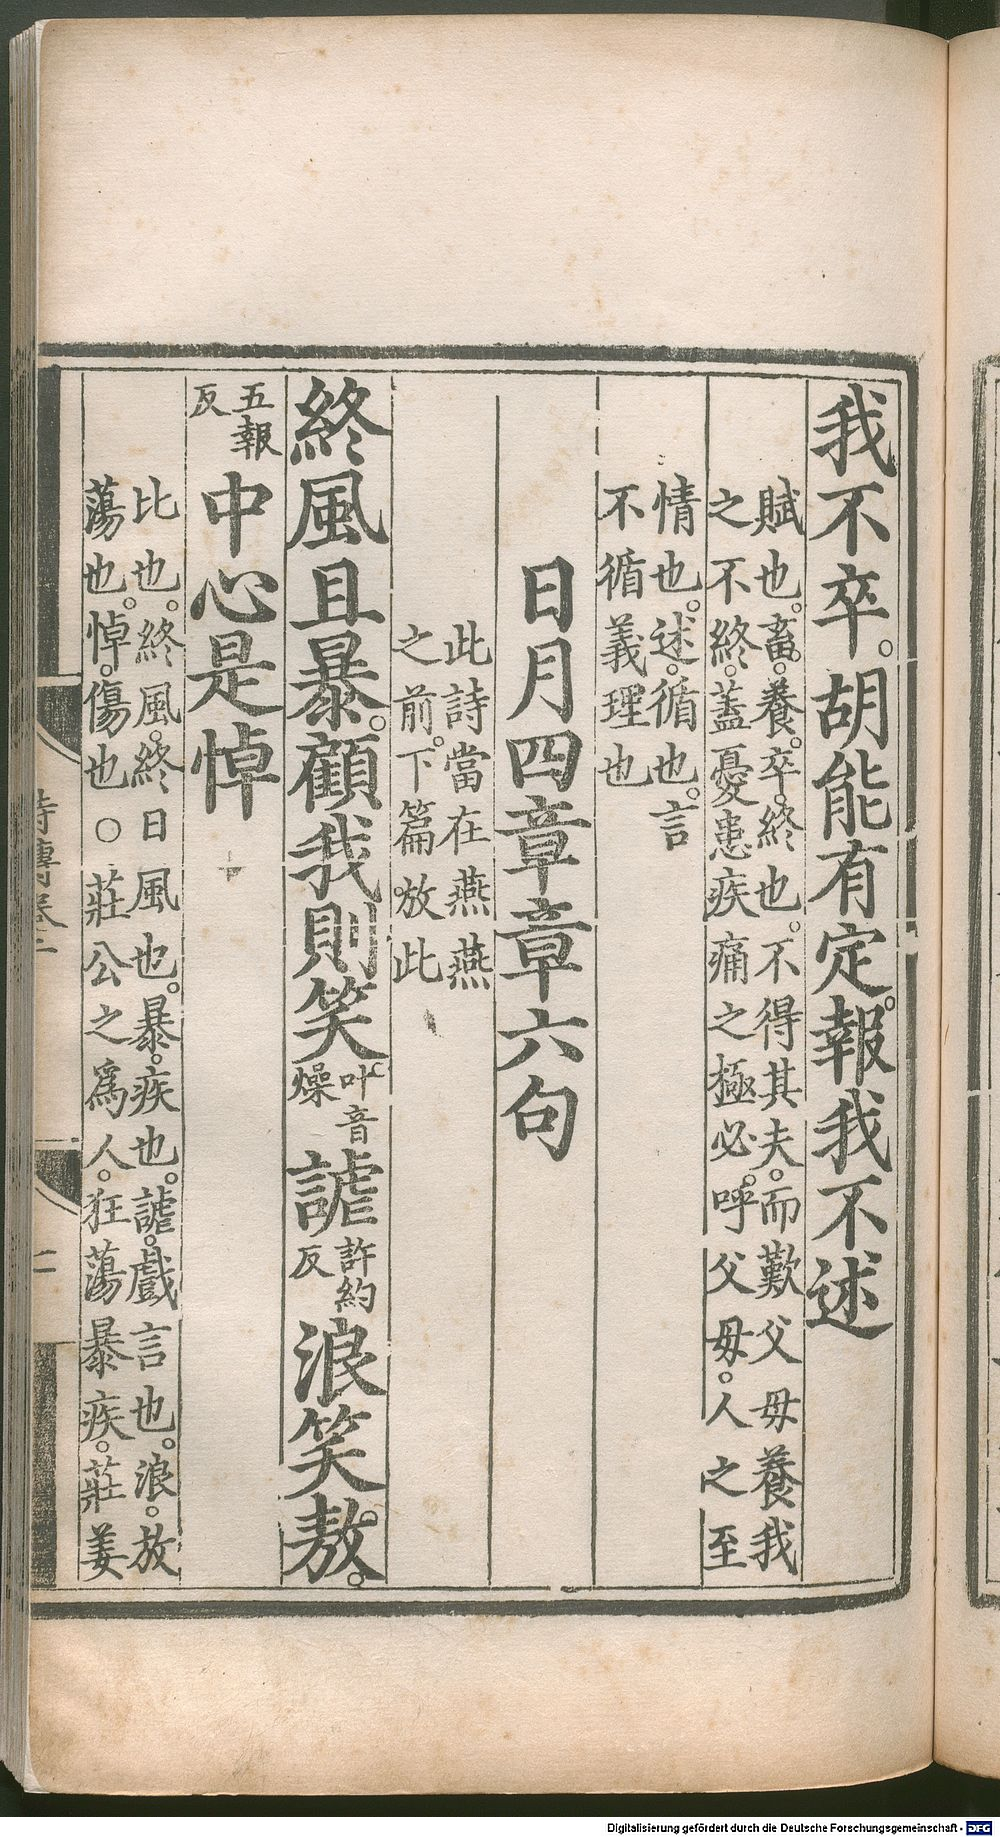 我不卒。胡能有定。報我不述
賦也。畜。養。卒。終也。不得其夫。而歎父母養我
之不終。蓋憂患疾痛之極。必呼父母。人之至
情也。述。循也。言
不循義理也
日月四章章六句
此詩當在燕燕
之前。下篇放此
終風且暴。顧我則笑叶音燥謔許約反浪笑敖。
五報反中心是悼
比也。終風。終日風也。暴。疾也。謔。戲言也。浪。放
蕩也。悼。傷也○莊公之爲人。狂蕩暴疾。莊姜
詩傳卷二
二
Digitalisierung gefördert durch die Deutsche Forschungsgemeinschaft - DFG